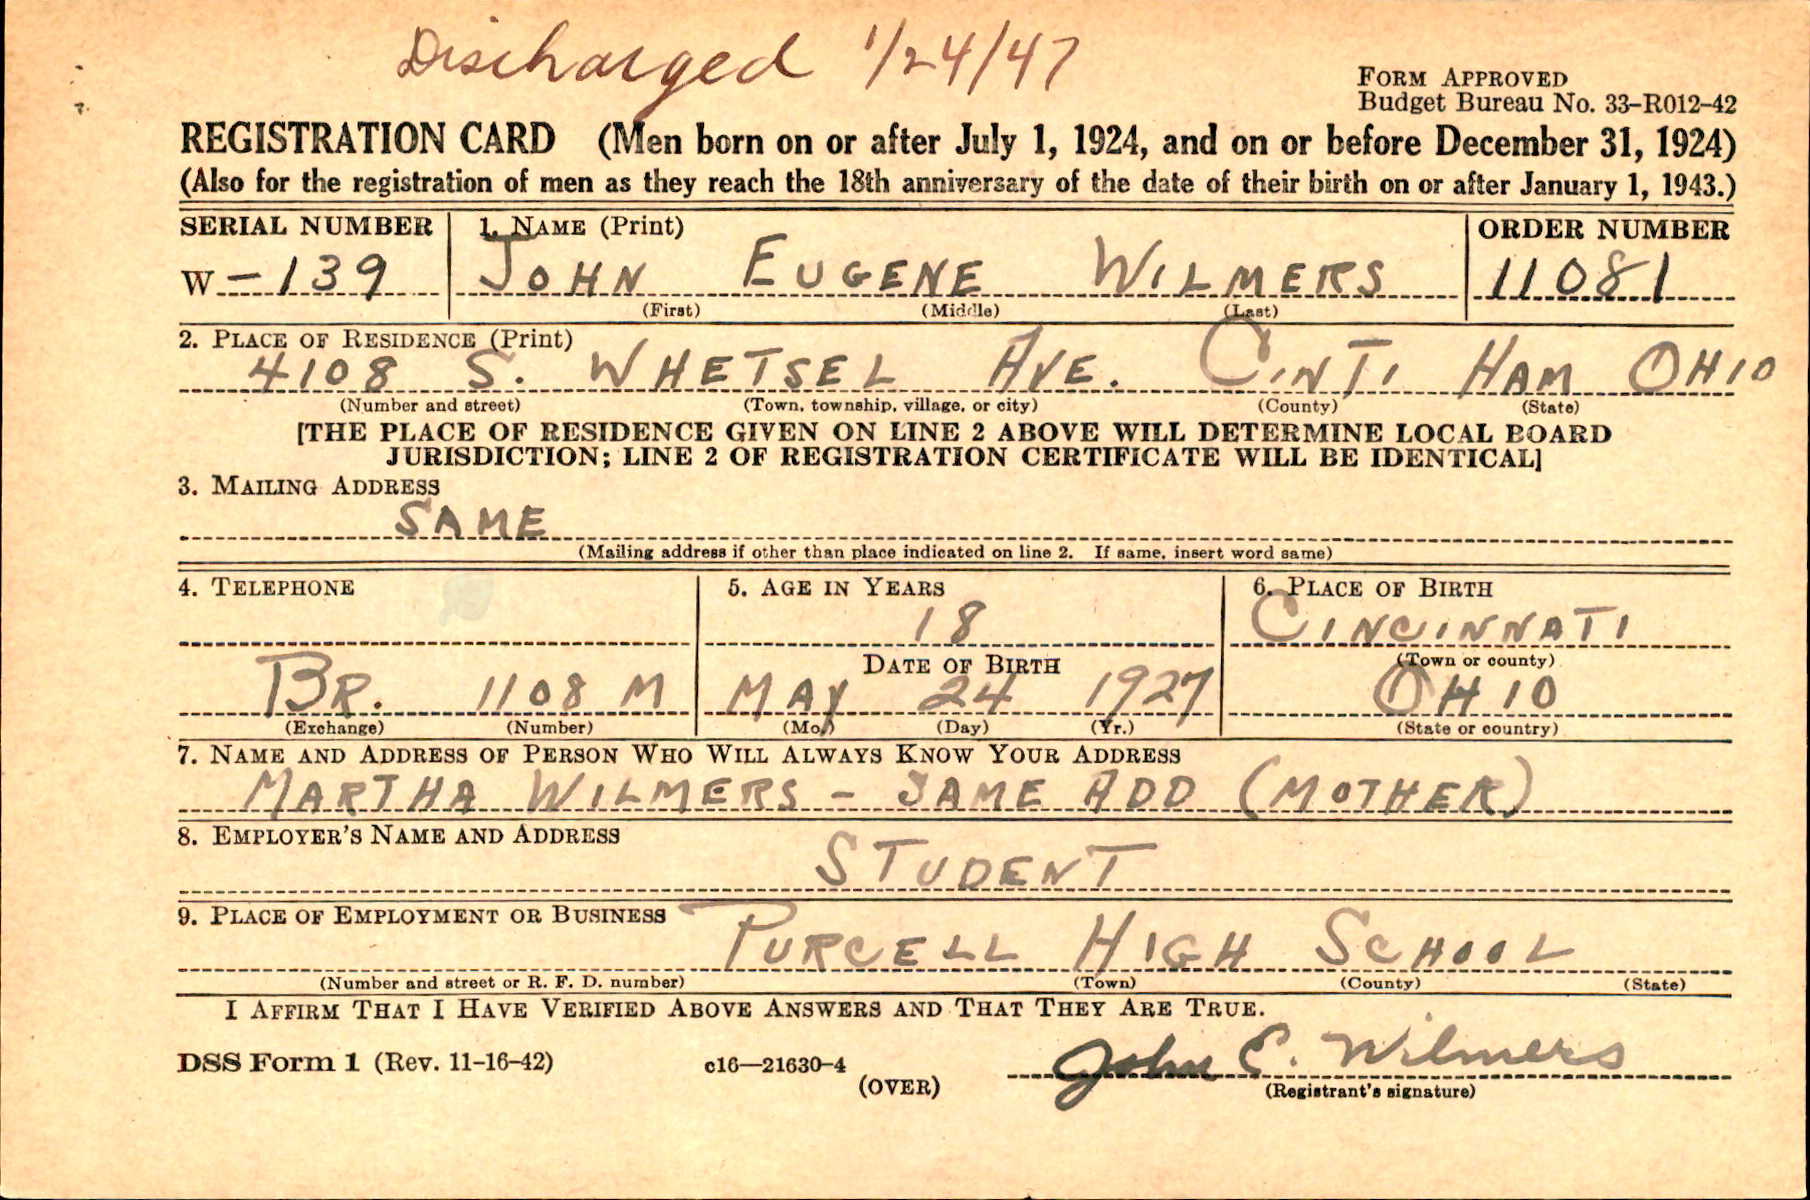 Discharged 1/24/47
FORM APPROVED
Budget Bureau No. 33-R012-42
REGISTRATION CARD (Men born on or after July 1, 1924, and on or before December 31, 1924)
(Also for the registration of men as they reach the 18th anniversary of the date of their birth on or after January 1, 1943.)
SERIAL NUMBER 1. NAME (Print) ORDER NUMBER
W-139 JOHN EUGENE WILMERS 11081
(First) (Middle) (Last)
2. PLACE OF RESIDENCE (Print)
4108 S. WHETSEL AVE. CINTI HAM OHIO
(Number and street) (Town, township, village, or city) (County) (State)
[THE PLACE OF RESIDENCE GIVEN ON LINE 2 ABOVE WILL DETERMINE LOCAL BOARD
JURISDICTION; LINE 2 OF REGISTRATION CERTIFICATE WILL BE IDENTICAL]
3. MAILING ADDRESS
SAME
(Mailing address if other than place indicated on line 2. If same, insert word same)
4. TELEPHONE 5. AGE IN YEARS 6. PLACE OF BIRTH
18 CINCINNATI
DATE OF BIRTH (Town or county)
BR. 1108 M MAY 24 1927 OHIO
(Exchange) (Number) (Mo.) (Day) (Yr.) (State or country)
7. NAME AND ADDRESS OF PERSON WHO WILL ALWAYS KNOW YOUR ADDRESS
MARTHA WILMERS - SAME ADD (MOTHER)
8. EMPLOYER'S NAME AND ADDRESS
STUDENT
9. PLACE OF EMPLOYMENT OR BUSINESS
PURCELL HIGH SCHOOL
(Number and street or R. F. D. number) (Town) (County) (State)
I AFFIRM THAT I HAVE VERIFIED ABOVE ANSWERS AND THAT THEY ARE TRUE.
DSS Form 1 (Rev. 11-16-42) c16—21630-4 John E. Wilmers
(OVER) (Registrant's signature)